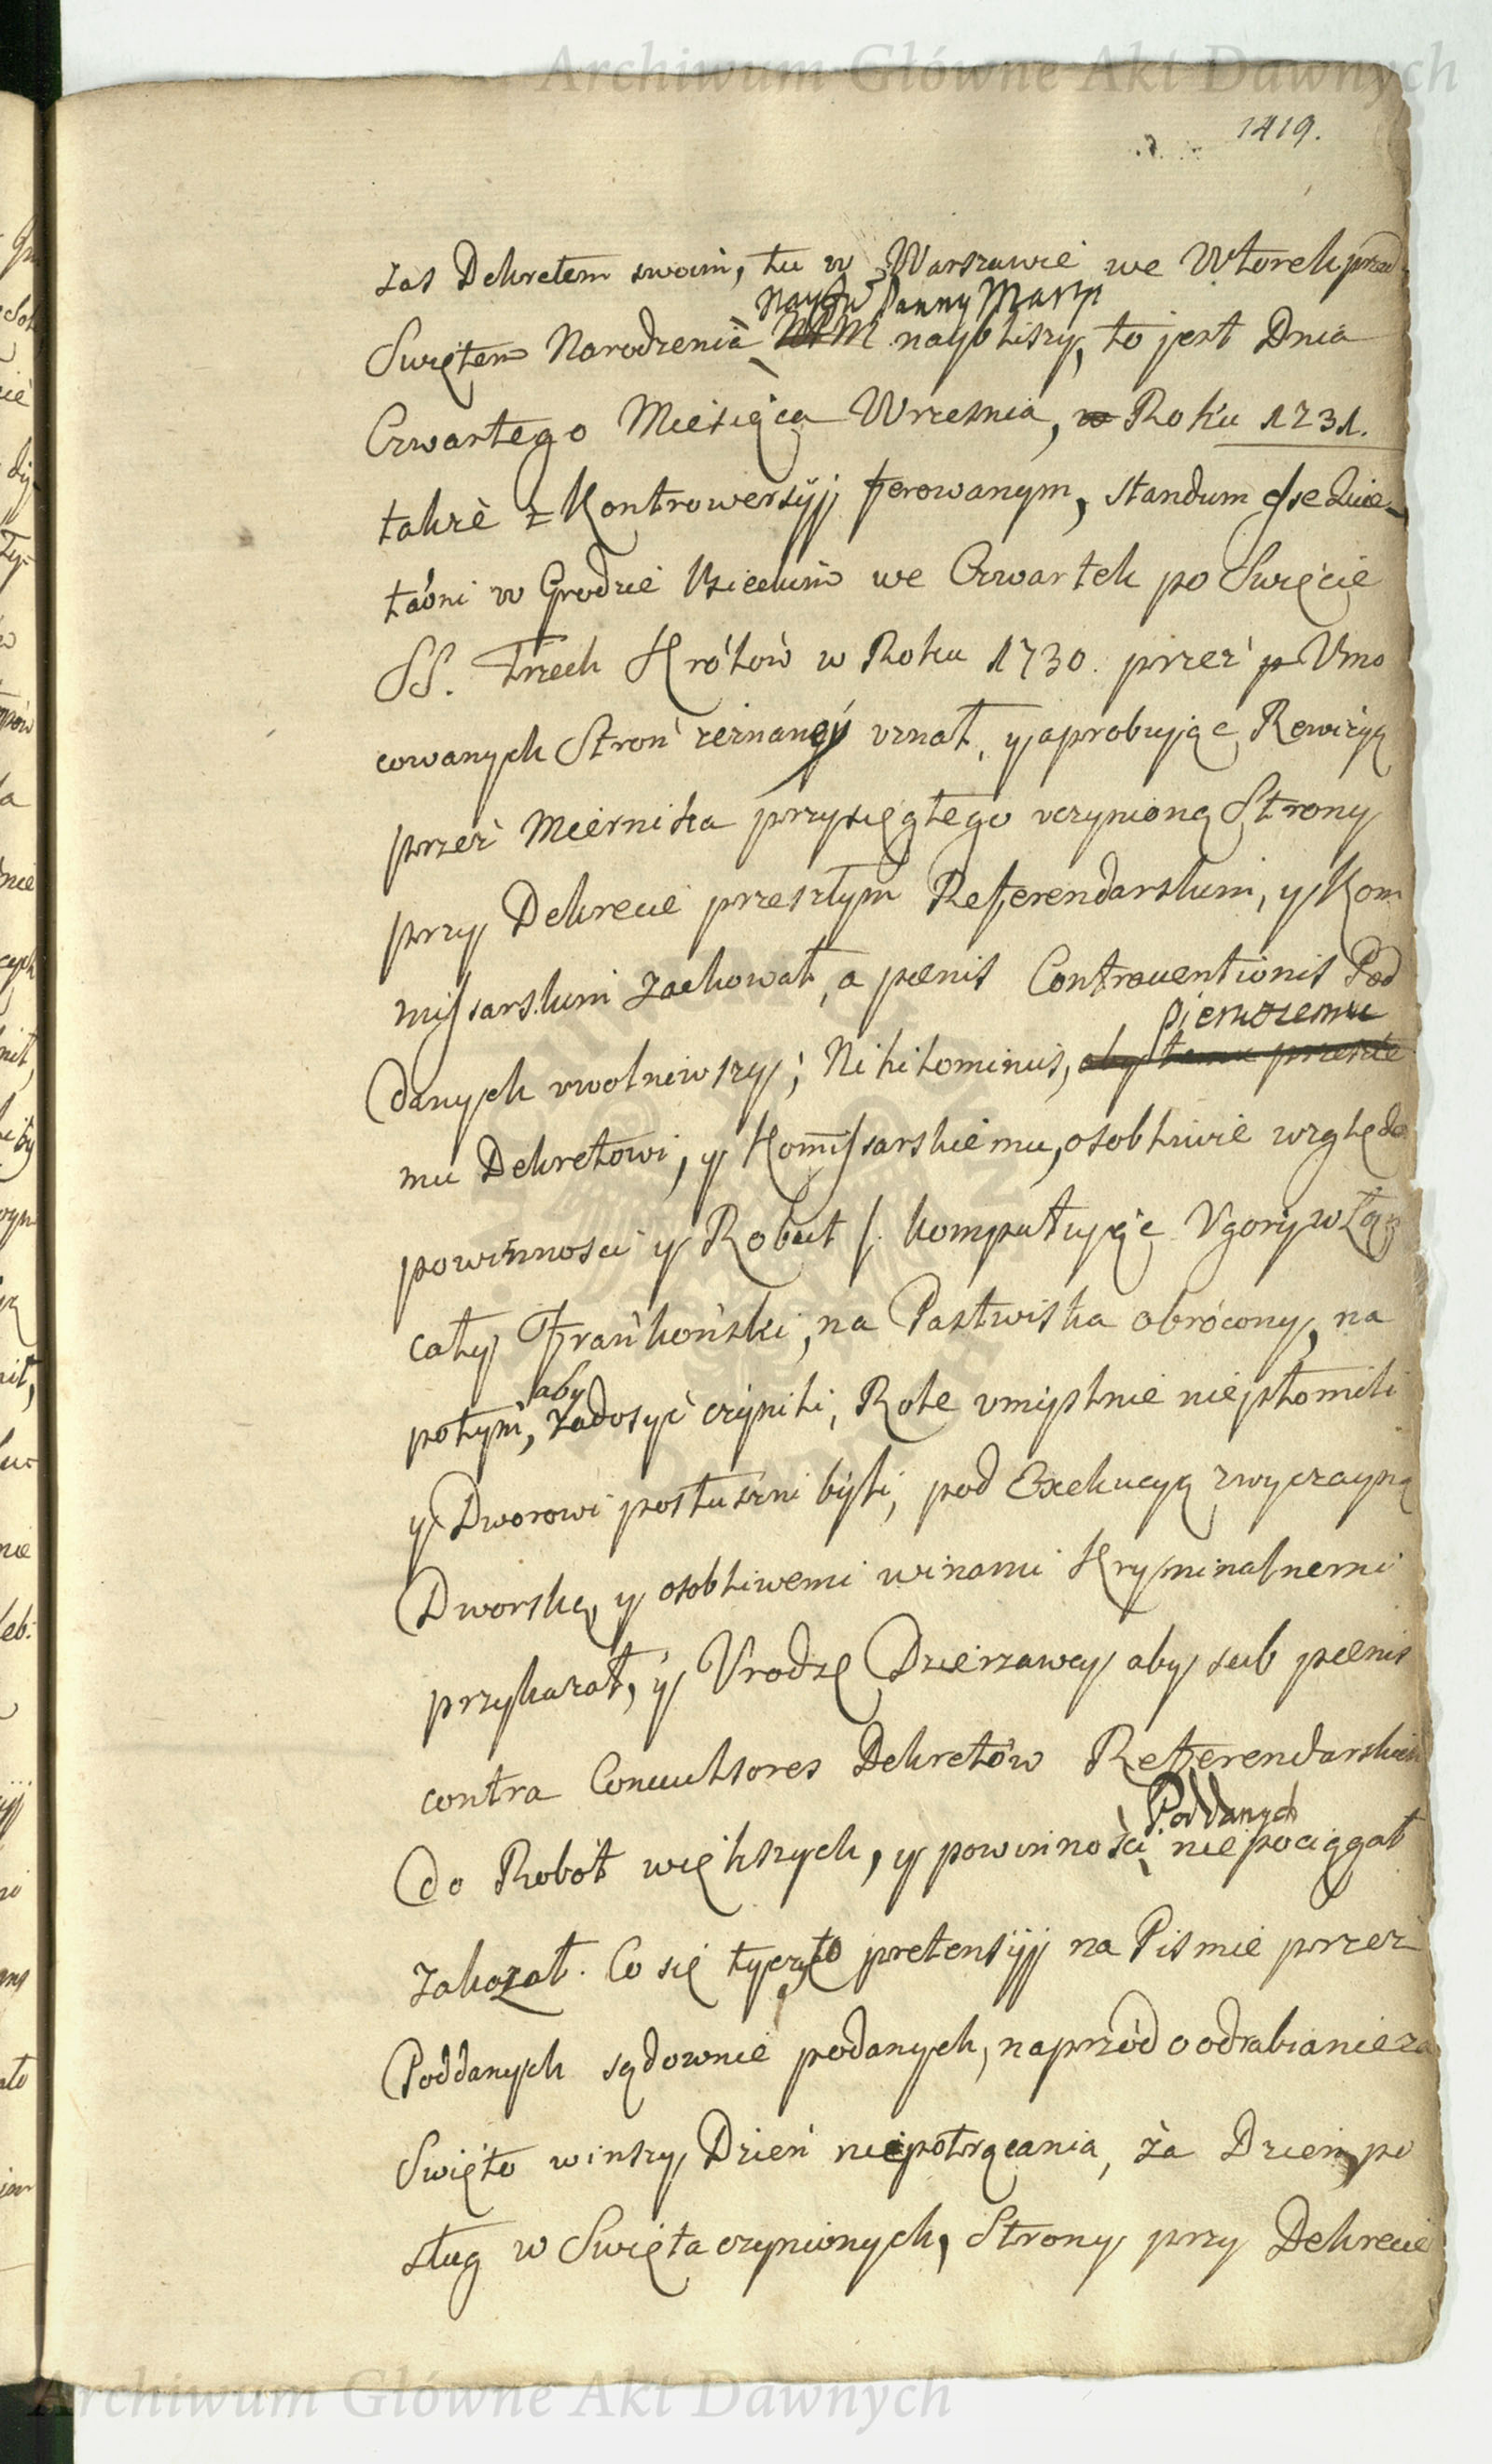 Archiwum Główne Akt Dawnych
1419.
zas Dekretem swoim, tu w Warszawie we Wtorek przed
Nayśw Panny Maryi
Swiętem Narodzenia NPM naybliszy, to jest Dnia
Czwartego Miesiąca Wrzesnia, w Roku 1731.
takze z Kontrowersyij ferowanym, standum esse
w Grodzie we Czwartek po Swięcie
SS. Trzech Królów w Roku 1730. przez p. Vmo
cowanych Stron zeznaney vznał, y aprobuiąc Rewizyą
przez Miernika przysięgłego vczynioną Strony
przy Dekrecie przeszłym Referendarskim, y Kom
missarskim zachował, a pœnis Contrauentionis Pod
pierwszemu
danych vwolniwszy; Nihilominus, aby temu przeszłe
mu Dekretowi, y Komissarskiemu, osobliwie względe
powinnosci y Robut /. komputuiąc Vgory w Łąn
cały Frańkoński, na Pastwiska obrócony, na
aby
potym, zadosyć czynili, Role vmyslnie niepłomili
y Dworowi posłuszni byli, pod Exekucyą zwyczayną
Dworską, y osobliwemi winami Kryminalnemi
przykazał, y Vrodzę Dzierzawcy aby sub pœnis
contra Conculsores Dekretów Referendarskich
Poddanych
do Robót większych, y powinnosci niepociągał
zakazał. Co się tycze pretensyij na Pismie przez
Poddanych sądownie podanych, naprzód o odrabianie za
Swięto w inszy Dzień niepotrącania, za Dzien, po
sług w Swięta czynionych, Strony przy Dekrecie
Archiwum Główne Akt Dawnych